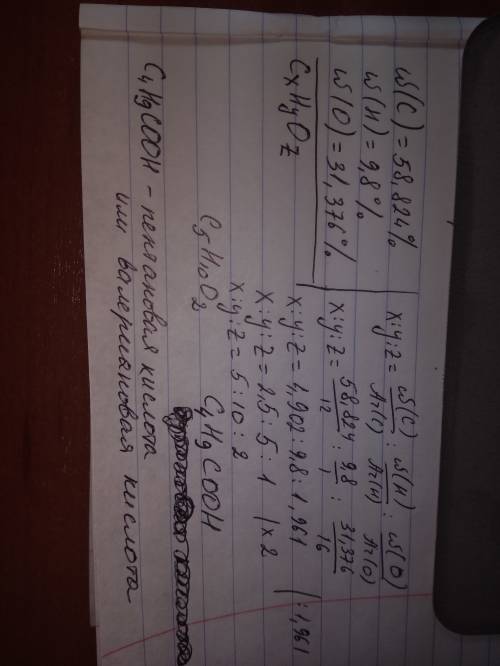 w(C) = 58,824%
w(H) = 9,8%
w(O) = 31,376%
CxHyOz
x:y:z = w(C)/Ar(C) : w(H)/Ar(H) : w(O)/Ar(O)
x:y:z = 58,824/12 : 9,8/1 : 31,376/16
x:y:z = 4,902 : 9,8 : 1,961 | : 1,961
x:y:z = 2,5 : 5 : 1 | x2
x:y:z = 5 : 10 : 2
C5H10O2 C4H9COOH
C4H9COOH - пентановая кислота
или валериановая кислота